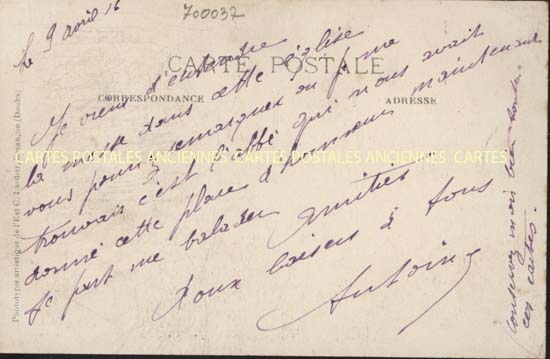 le 9 avril 16
700037
CARTE POSTALE
CORRESPONDANCE
ADRESSE
Je viens d'entendre
la messe dans cette église
vous pourrez remarquer où je me
trouvais c'est l'abbé qui nous avait
donné cette place d'honneur maintenant
je pars me balader. Amitiés
Doux baisers à tous
Antoine
Conservez moi bien toutes
ces cartes.
CARTES POSTALES ANCIENNES CARTES POSTALES ANCIENNES CARTES POSTALES ANCIENNES CARTES
Phototypie artistique de l'Est C. Lardier, Besançon (Doubs)